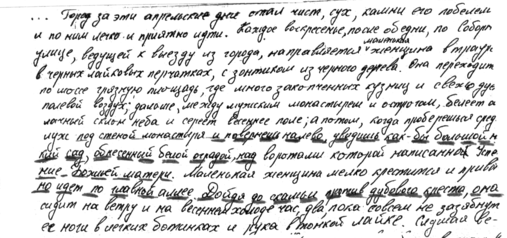 ... Город за эти апрельские дни стал чист, сух, камни его побелели
и по ним легко и приятно идти. Каждое воскресенье, после обедни, по Соборн
улице, ведущей к выезду из города, направляется маленькая женщина в трауре
в черных лайковых перчатках, с зонтиком из черного дерева. Она переходит
по шоссе грязную площадь, где много закопченных кузниц и свежо дует
полевой воздух: дальше, между мужским монастырем и острогом, белеет о
лачный склон неба и сереет весеннее поле; а потом, когда проберешься сред
лужс под стеной монастыря и повернешь налево, увидишь как-бы большой н
кий сад, обнесенный белой оградой, над воротами которой написанная Успе
ние Божией матери. Маленькая женщина мелко крестится и привы
но идет по главной аллее. Дойдя до скамьи против дубового креста, она
сидит на ветру и на весеннем холоде час, два, пока совсем не зазябнут
ее ноги в легких ботинках и рука в тонкой лайке. Слушая ве-